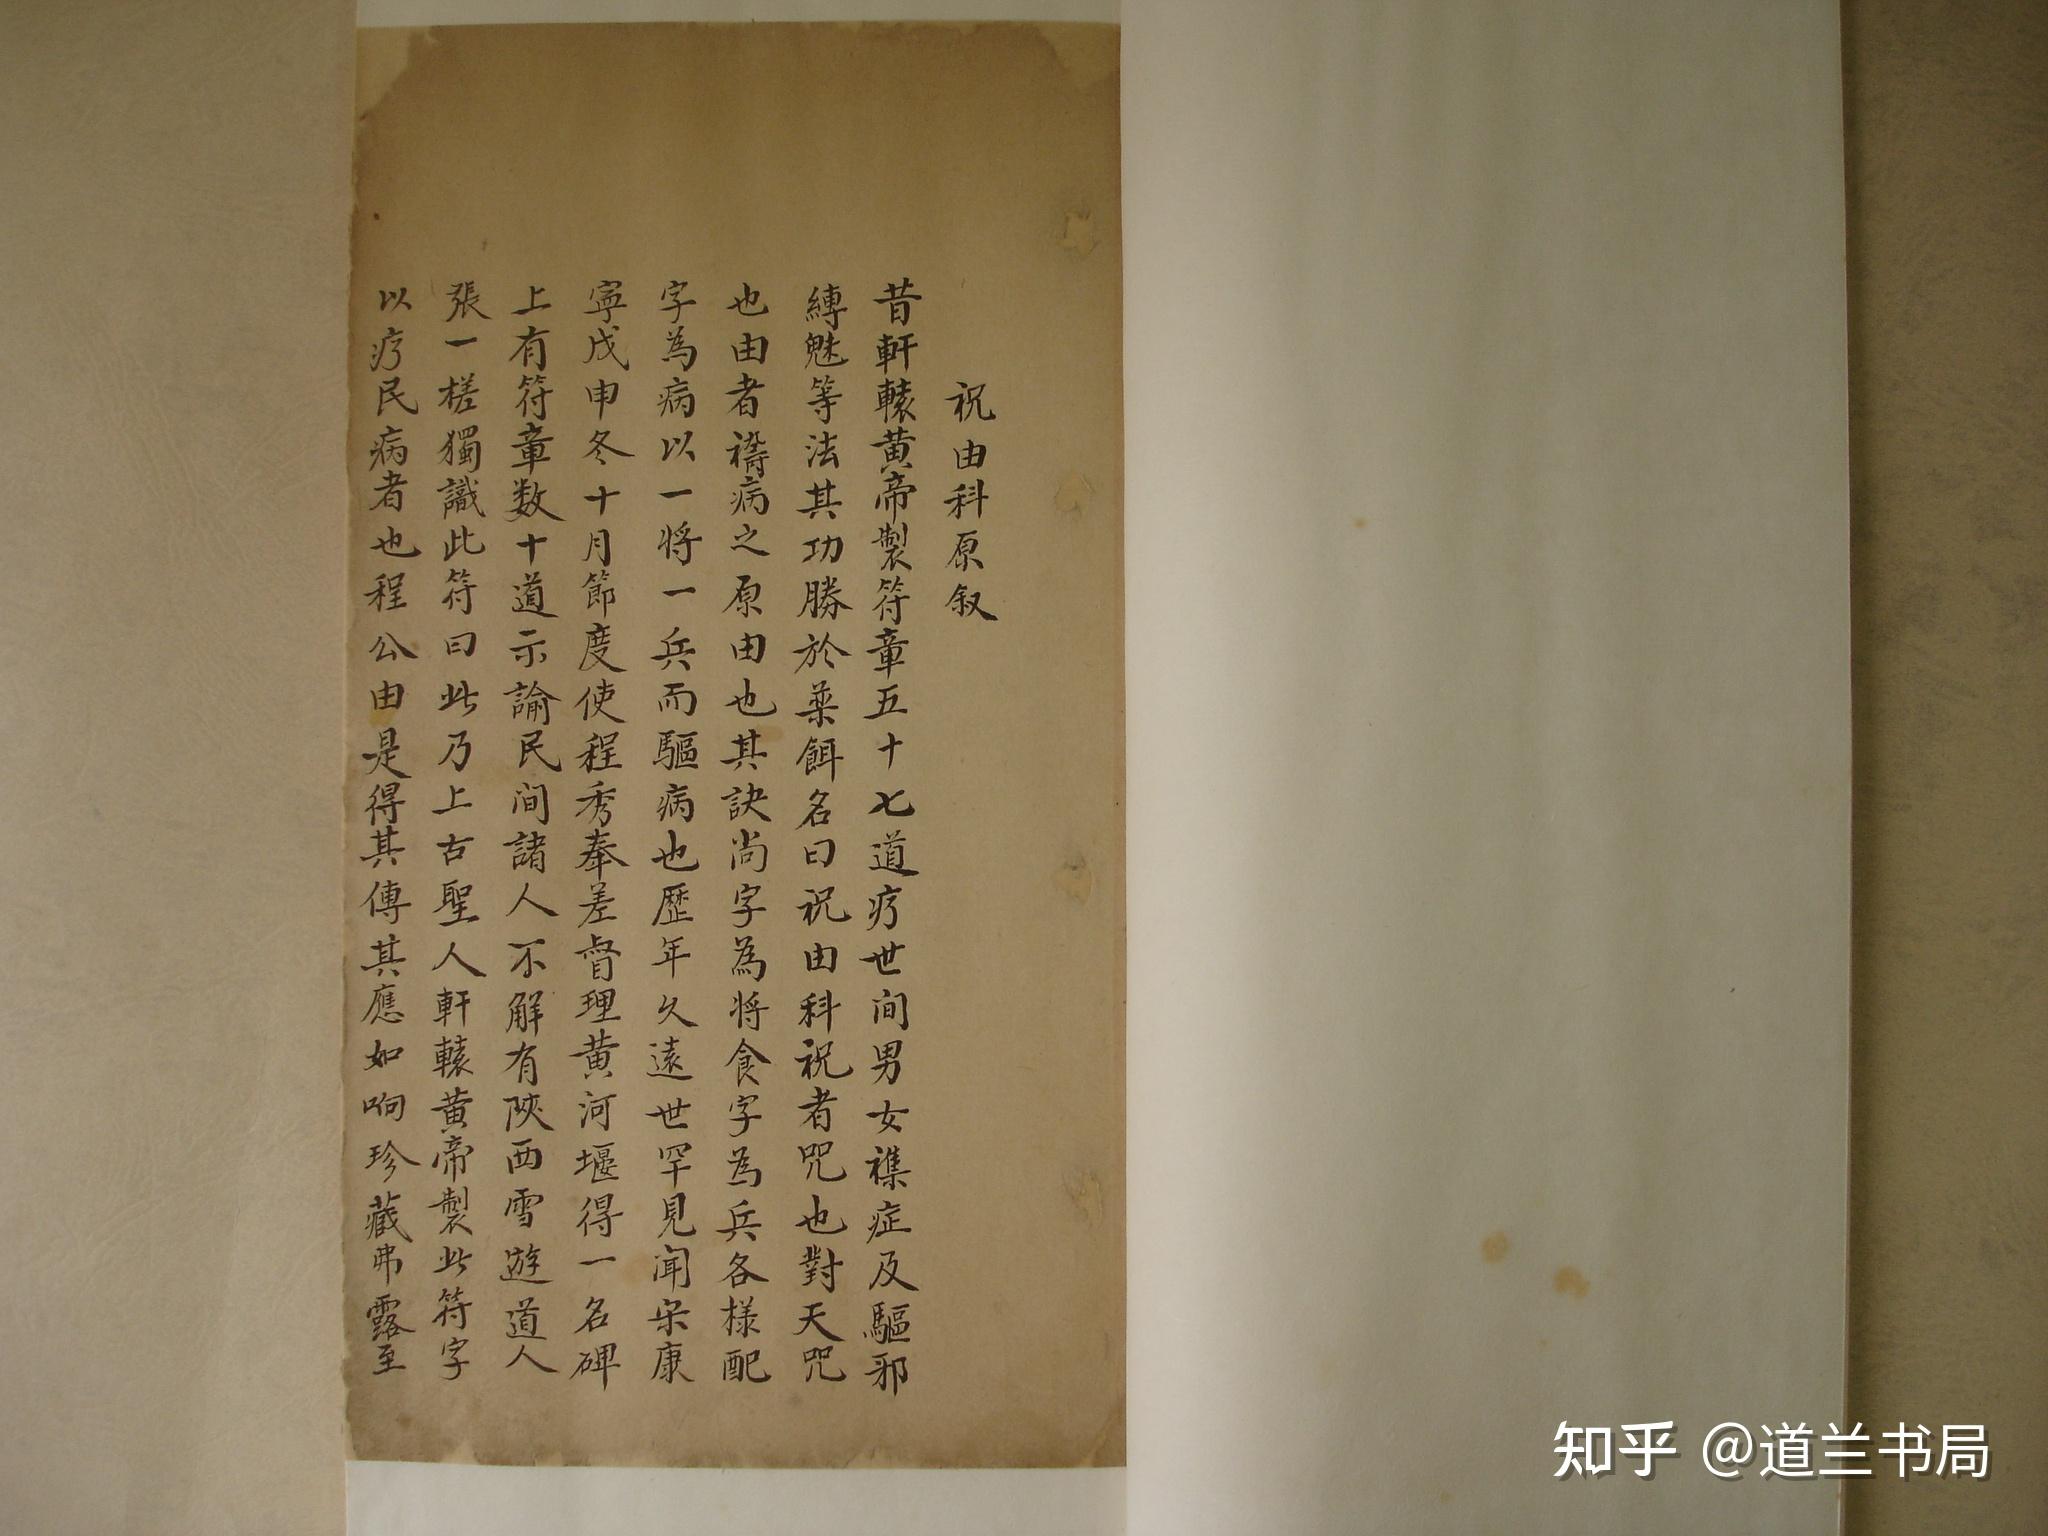 祝由科原叙
昔軒轅黄帝製符章五十七道疗世间男女襍症及驅邪
縛魅等法其功勝於藥餌名曰祝由科祝者咒也對天咒
也由者禱病之原由也其訣尚字為将食字為兵各樣配
字為病以一将一兵而驅病也歷年久遠世罕見闻宋康
寧戊申冬十月節度使程秀奉差督理黄河堰得一名碑
上有符章数十道示諭民间諸人不解有陝西雪遊道人
張一槎獨識此符曰此乃上古聖人軒轅黄帝製此符字
以疗民病者也程公由是得其傳其應如响珍藏弗露至
知乎 @道兰书局